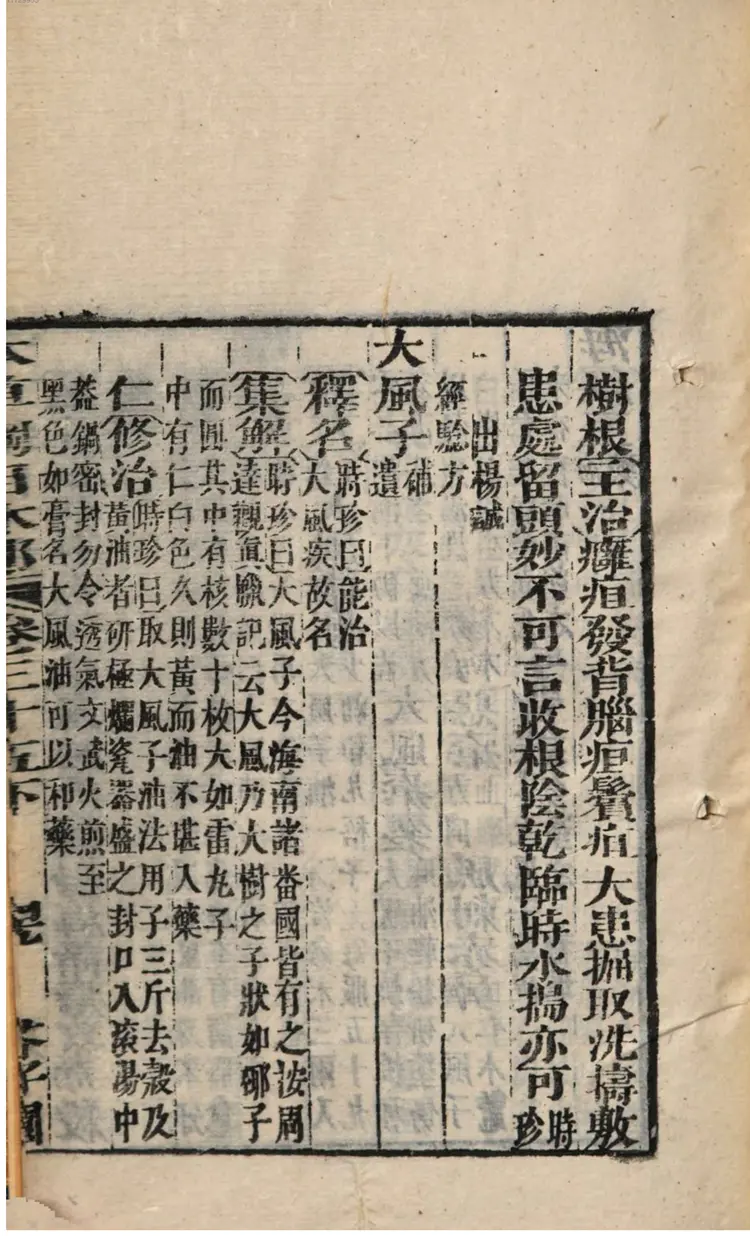 樹根主治癰疽發背腦疽鬢疽大患掘取洗擣敷
患處留頭妙不可言收根陰乾臨時水搗亦可時珍
出楊誠
經驗方
大風子補遺
釋名時珍曰能治
大風疾故名
集解時珍曰大風子今海南諸畨國皆有之按周
達觀眞臘記云大風乃大樹之子狀如椰子
而圓其中有核數十枚大如雷丸子
中有仁白色久則黃而油不堪入藥
仁修治時珍曰取大風子油法用子三斤去殼及
黃油者研極爛瓷器盛之封口入滾湯中
蓋鍋密封勿令透氣文武火煎至
黑色如膏名大風油可以和藥
木部卷三十五下 芥子園